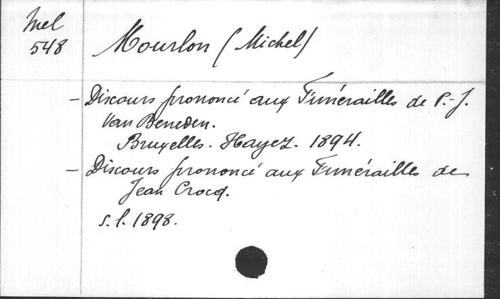 Mel
548
Mourlon (Michel)
- Discours prononcé aux Funérailles de P.-J.
Van Beneden.
Bruxelles. Hayez. 1894.
- Discours prononcé aux Funérailles de
Jean Crocq.
s.l. 1898.